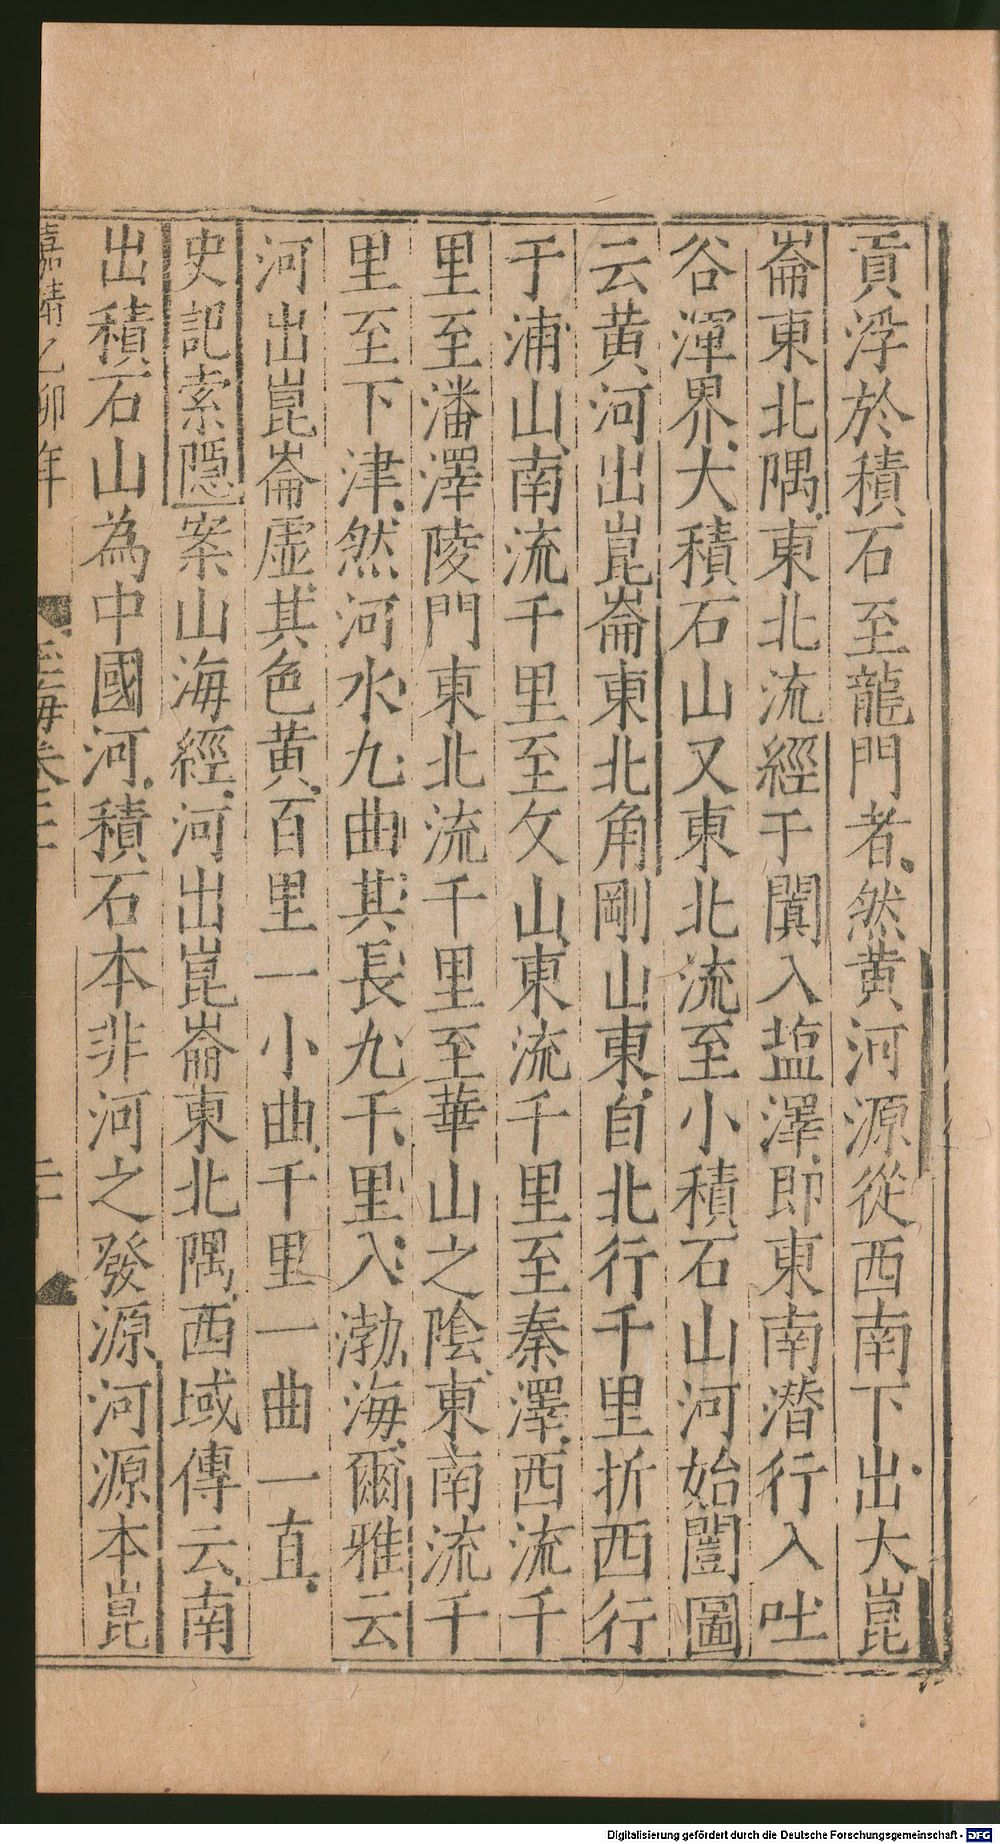 貢浮於積石至龍門者然黄河源從西南下出大崑
崙東北隅東北流經于闐入塩澤即東南潛行入吐
谷渾界大積石山又東北流至小積石山河始闓圖
云黄河出崑崙東北角剛山東自北行千里折西行
于浦山南流千里至文山東流千里至秦澤西流千
里至潘澤陵門東北流千里至華山之陰東南流千
里至下津然河水九曲其長九千里入渤海爾雅云
河出崑崙虛其色黄百里一小曲千里一曲一直
史記索隱案山海經河出崑崙東北隅西域傳云南
出積石山為中國河積石本非河之發源河源本崑
嘉靖乙卯年 玉海卷二十 二十
Digitalisierung gefördert durch die Deutsche Forschungsgemeinschaft - DFG